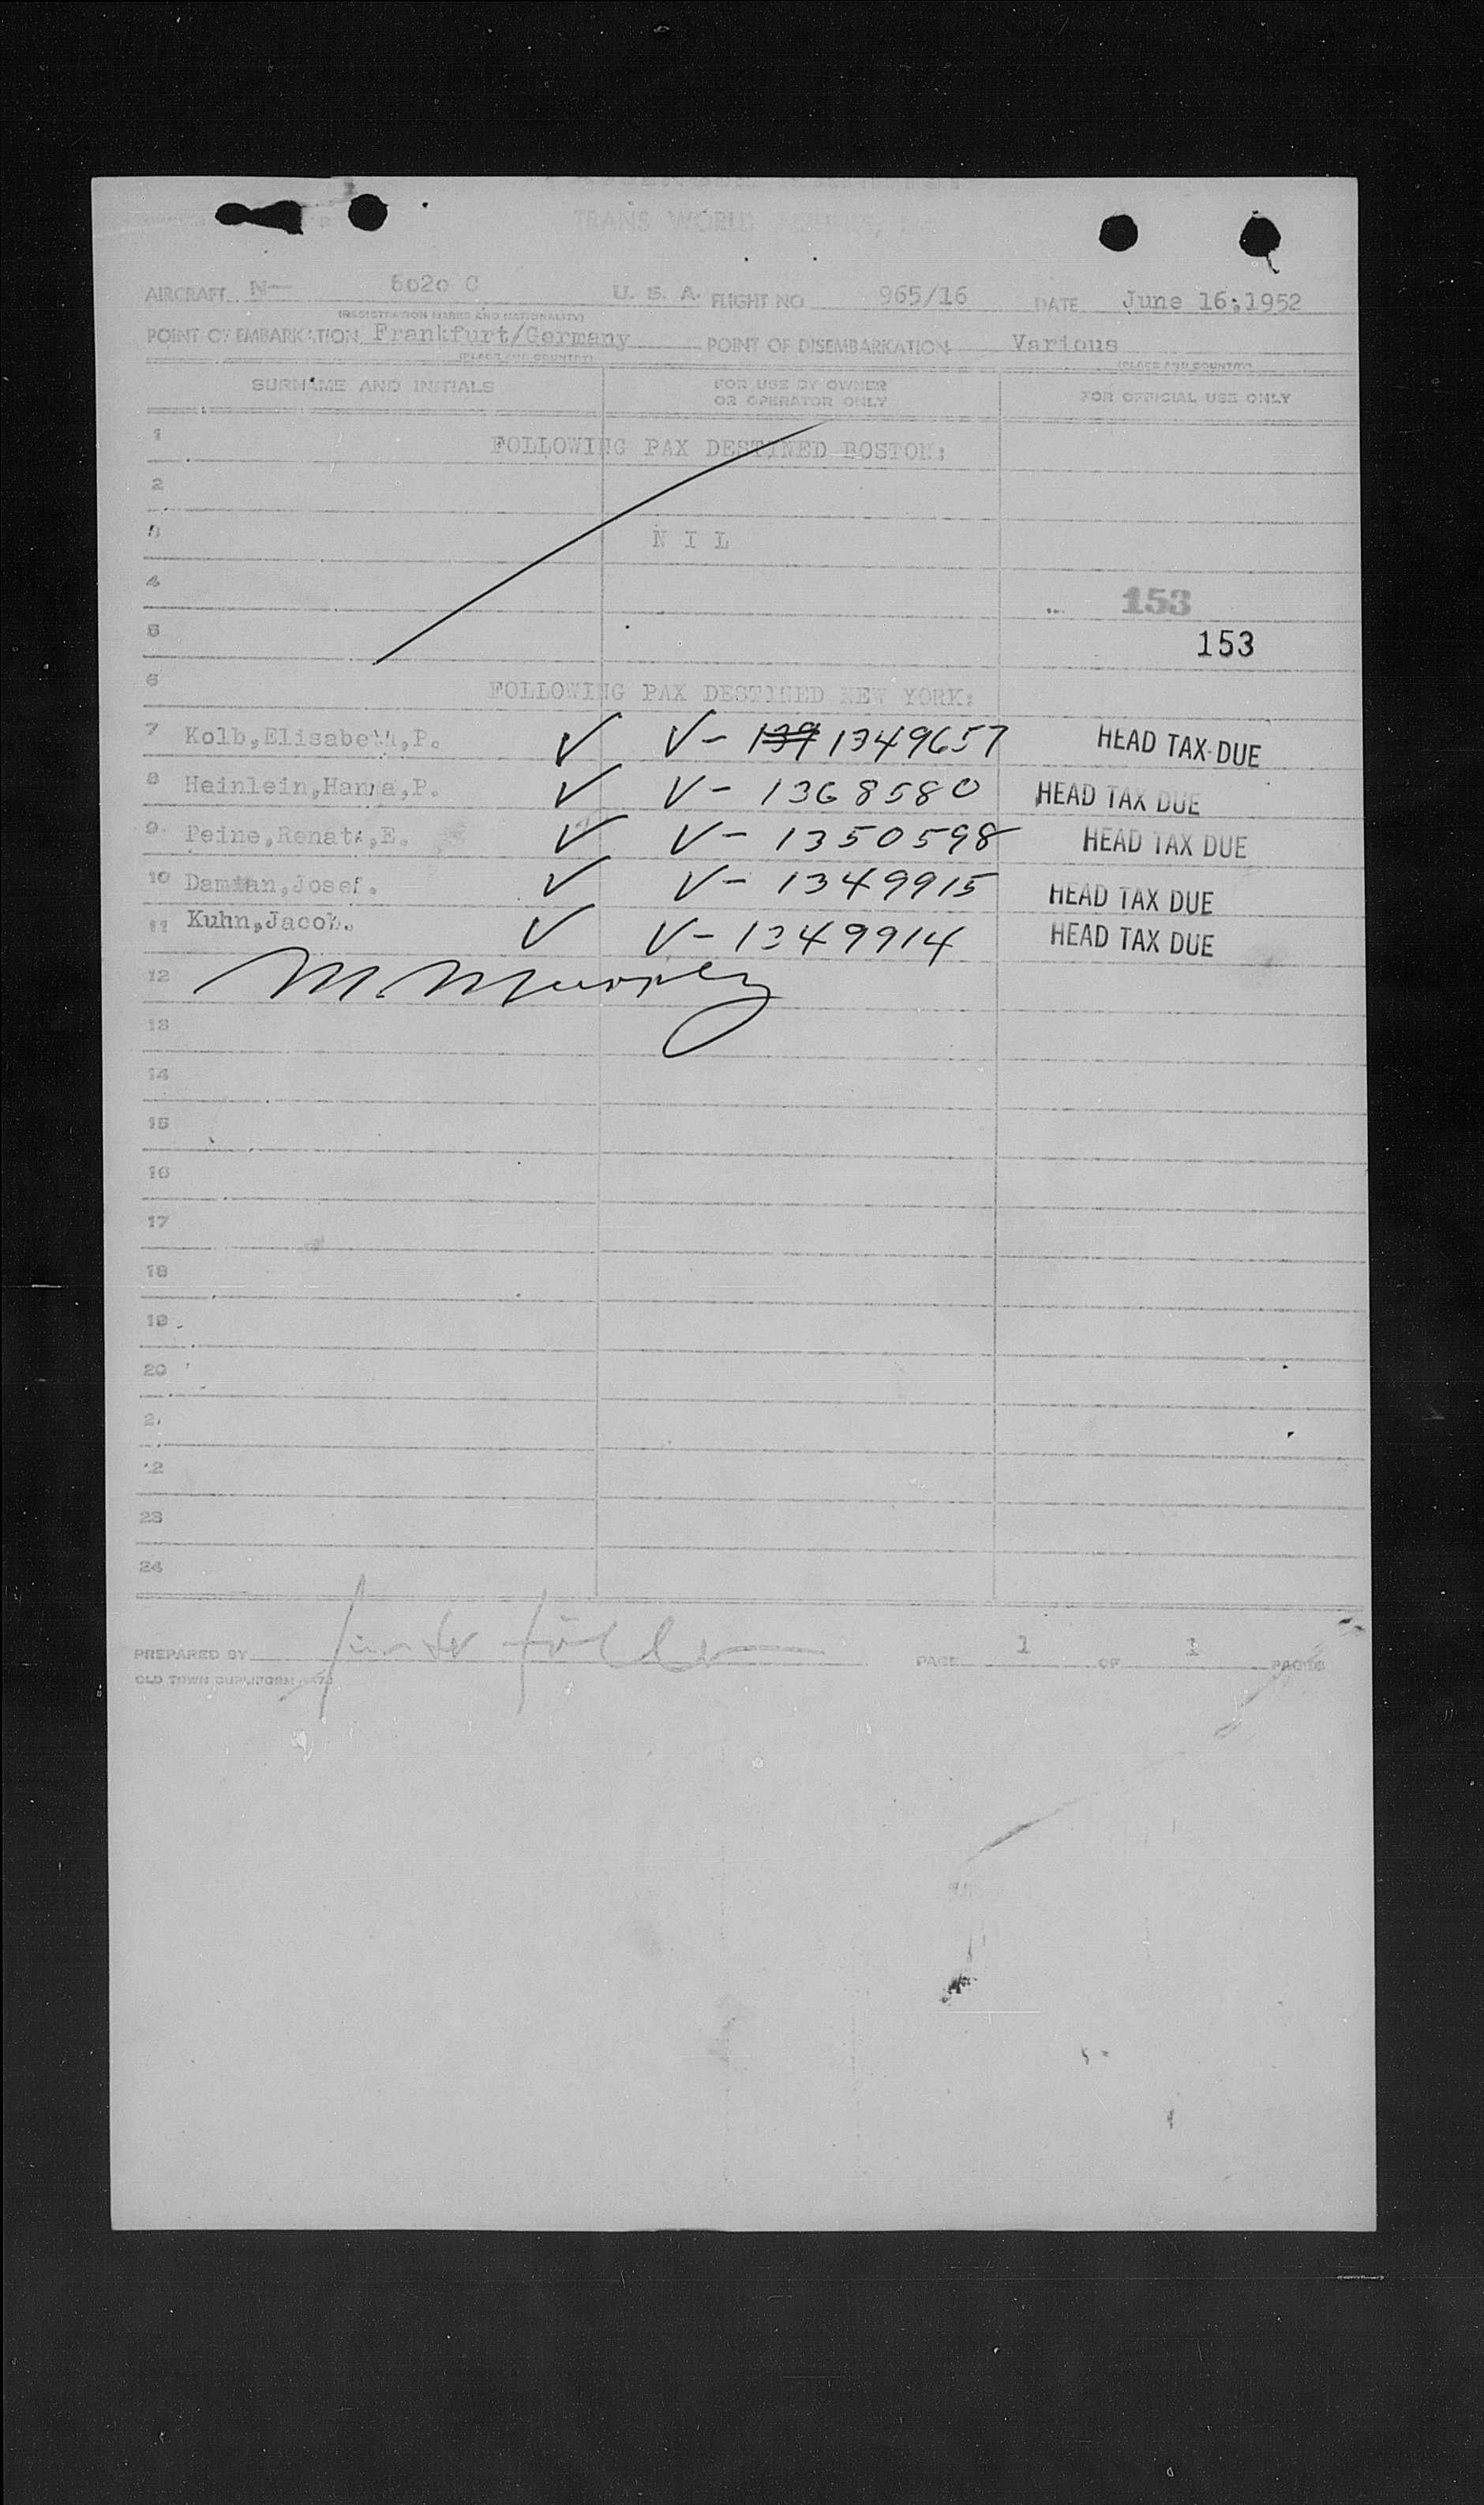 TRANS WORLD AIRLINES,
AIRCRAFT N— 6020 C U. S. A. FLIGHT NO 965/16 DATE June 16;1952
(REGISTRATION MARKS AND NATIONALITY)
POINT OF EMBARKATION Frankfurt/Germany POINT OF DISEMBARKATION Various
(PLACE AND COUNTRY) (PLACE AND COUNTRY)
SURNAME AND INITIALS FOR USE BY OWNER OR OPERATOR ONLY FOR OFFICIAL USE ONLY
1 FOLLOWING PAX DESTINED BOSTON:
2
3 N I L
4 153
5 153
6 FOLLOWING PAX DESTINED NEW YORK:
7 Kolb,Elisabeth,P. ✓ V- 139 1349657 HEAD TAX DUE
8 Heinlein,Hanna,P. ✓ V- 1368580 HEAD TAX DUE
9 Peine,Renate,E. ✓ V- 1350598 HEAD TAX DUE
10 Damian,Josef. ✓ V- 1349915 HEAD TAX DUE
11 Kuhn,Jacob. ✓ V-1349914 HEAD TAX DUE
12 M. Murphy
13
14
15
16
17
18
19
20
2
2
23
24
PREPARED BY PAGE 1 OF 1 PAGES
OLD TOWN